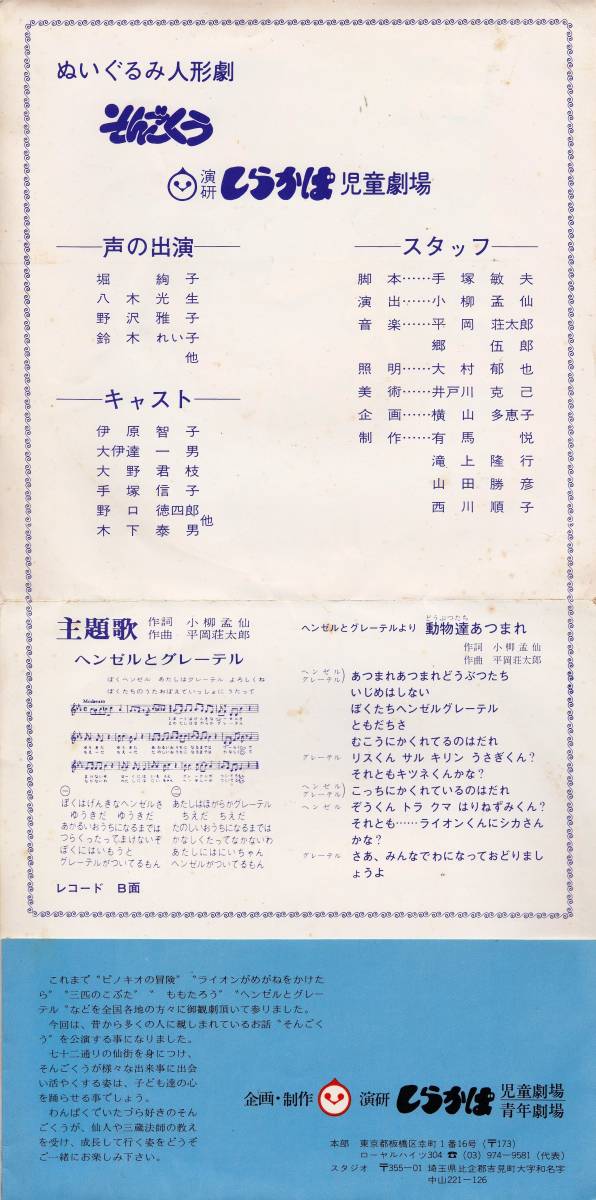 ぬいぐるみ人形劇
そんごくう
演研 しらかば 児童劇場
声の出演
堀 絢子
八木光生
野沢雅子
鈴木れい子
他
キャスト
伊原智子
大伊達一男
大野君枝
手塚信子
野口徳四郎
木下泰男
他
スタッフ
脚本……手塚敏夫
演出……小柳孟仙
音楽……平岡荘太郎
郷伍郎
照明……大村郁也
美術……井戸川克己
企画……横山多恵子
制作……有馬悦
滝上隆行
山田勝彦
西川順子
主題歌 作詞 小柳孟仙
作曲 平岡荘太郎
ヘンゼルとグレーテル
ぼくヘンゼル あたしはグレーテル よろしくね
ぼくたちのうたおぼえていっしょに うたって
Moderato
㈠
ぼくはげんきなヘンゼルさ
ゆうきだ ゆうきだ
あかるいおうちになるまでは
つらくったってまけないぞ
ぼくにはいもうと
グレーテルがついてるもん
㈡
あたしはほがらかグレーテル
ちえだ ちえだ
たのしいおうちになるまでは
かなしくたってなかないわ
あたしにはにいちゃん
ヘンゼルがついてるもん
レコード B面
ヘンゼルとグレーテルより 動物達あつまれ
どうぶつたち
作詞 小柳孟仙
作曲 平岡荘太郎
ヘンゼル グレーテル) あつまれあつまれどうぶつたち
いじめはしない
ぼくたちヘンゼルグレーテル
ともだちさ
むこうにかくれてるのはだれ
グレーテル リスくん サル キリン うさぎくん?
それともキツネくんかな?
ヘンゼル グレーテル) こっちにかくれているのはだれ
ヘンゼル ぞうくん トラ クマ はりねずみくん?
それとも……ライオンくんにシカさん
かな?
グレーテル さあ、みんなでわになっておどりまし
ょうよ
これまで〝ピノキオの冒険〟〝ライオンがめがねをかけた
ら〟〝三匹のこぶた〟〝ももたろう〟〝ヘンゼルとグレー
テル〟などを全国各地の方々に御観劇頂いて参りました。
今回は、昔から多くの人に親しまれているお話〝そんごく
う〟を公演する事になりました。
七十二通りの仙術を身につけ、
そんごくうが様々な出来事に出会
い活やくする姿は、子ども達の心
を踊らせる事でしょう。
わんぱくでいたづら好きのそん
ごくうが、仙人や三蔵法師の教え
を受け、成長して行く姿をどうぞ
ご一緒にお楽しみ下さい。
企画・制作 演研 しらかば 児童劇場
青年劇場
本部 東京都板橋区幸町1番16号(〒173)
ローヤルハイツ304 ☎(03)974−9581(代表)
スタジオ 〒355−01 埼玉県比企郡吉見町大字和名字
中山221−126